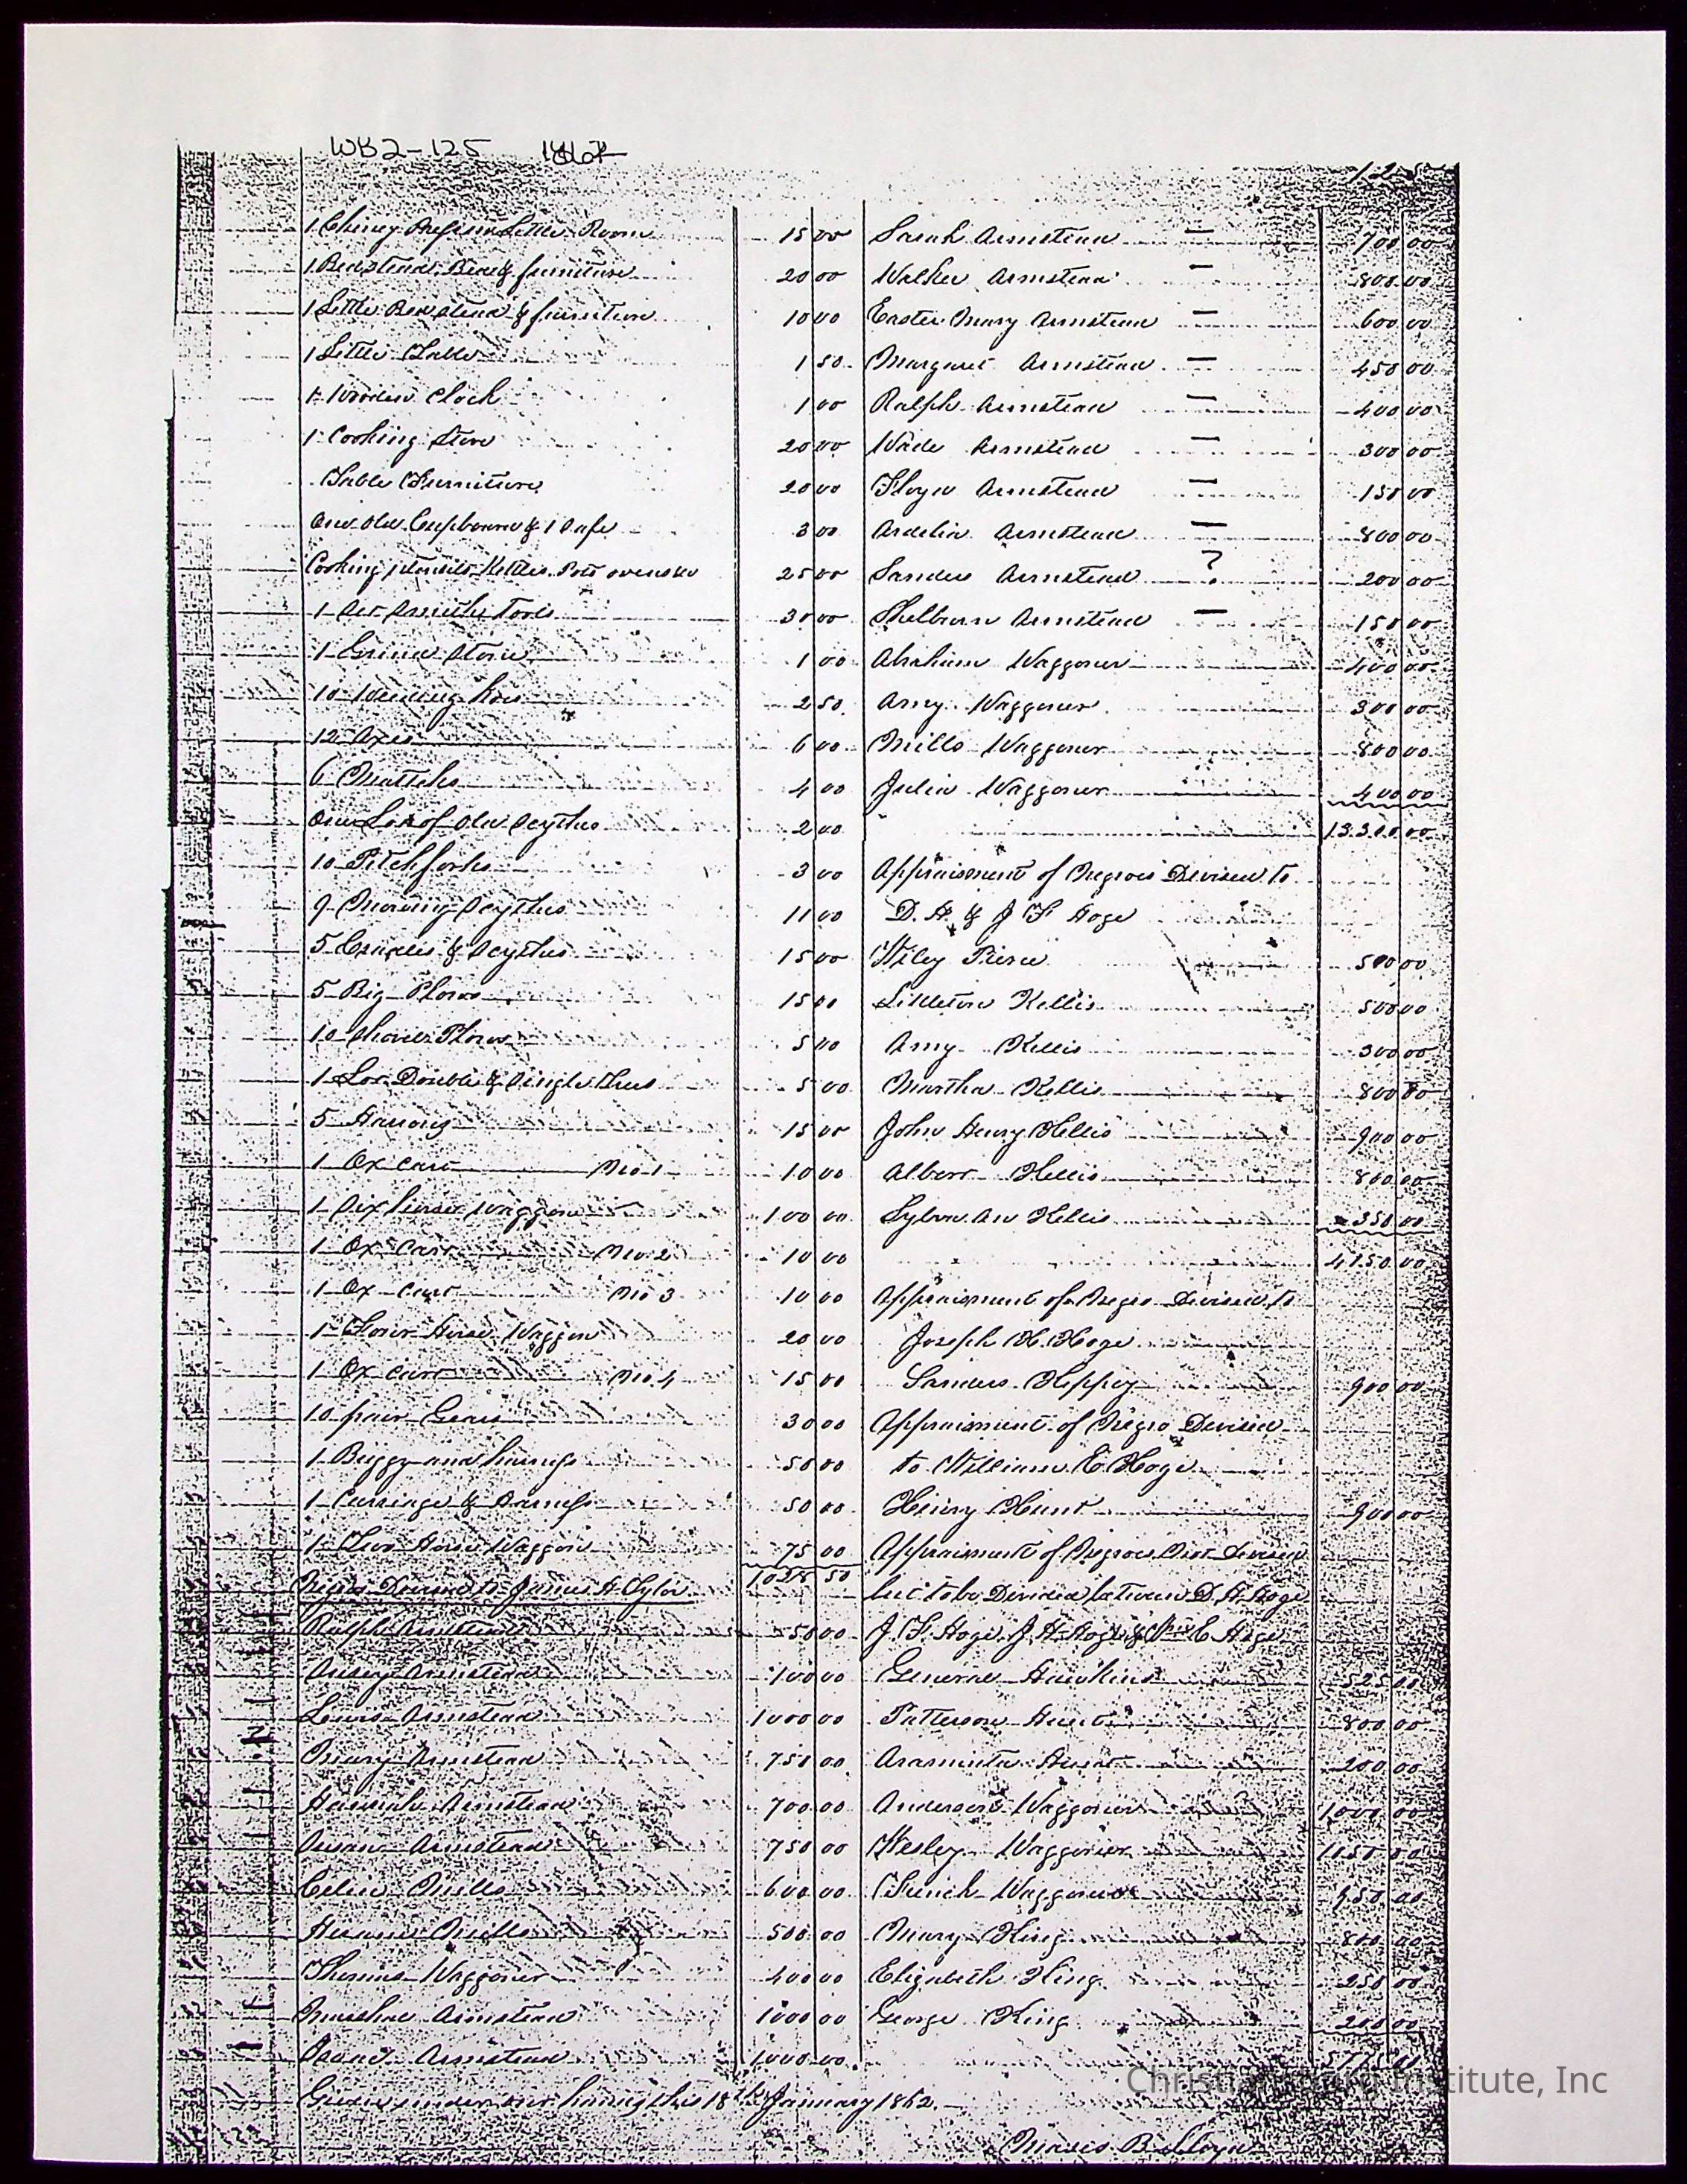 WB2-125 1862
125
1 Chiney Press in Little Room 15 00
1 Bedstead, Bed & furniture 20 00
1 Little Bedstead & furniture 10 00
1 Little Table 1 50
1 Wooden Clock 1 00
1 Cooking Stove 20 00
Table Furniture 20 00
One Old Cupboard & 1 Safe 3 00
Cooking utensils Kettles Pots ovens &c 25 00
1 Set Smiths Tools 30 00
1 Grind Stone 1 00
10 Weeding hoes 2 50
12 Axes 6 00
6 Mattoks 4 00
One Lot of Old Scythes 2 00
10 Pitchforks 3 00
9 Mowing Scythes 11 00
5 Cradles & Scythes 15 00
5 Big Plows 15 00
10 Shovel Plows 5 00
1 Lot Double & Single trees 5 00
5 Harrows 15 00
1 Ox Cart No 1 10 00
1 Six horse Waggon 100 00
1 Ox Cart No 2 10 00
1 Ox Cart No 3 10 00
1 Four Horse Waggon 20 00
1 Ox Cart No 4 15 00
10 pair Gears 30 00
1 Buggy and harness 50 00
1 Carriage & Harness 50 00
1 Two Horse Waggon 75 00
1028 50
Negros Devised to James H. Tylor
Ralph Armstead 50 00
Armstead 100 00
Lewis Armstead 1000 00
Mary Armstead 750 00
Hannah Armstead 700 00
Susan Armstead 750 00
Celia Mills 600 00
Mills 500 00
Thomas Waggoner 400 00
Marshal Armstead 1000 00
Armstead 1000 00
Sarah Armstead 700 00
Walker Armstead 800 00
Easter Mary Armstead 600 00
Margaret Armstead 450 00
Ralph Armstead 400 00
Wade Armstead 300 00
Floyd Armstead 150 00
Ardelia Armstead 800 00
Sanders Armstead ? 200 00
Shelburn Armstead 150 00
Abraham Waggoner 400 00
Amy Waggoner 300 00
Mills Waggoner 800 00
Julia Waggoner 400 00
13300 00
Appraisment of Negroes Devised to
D. H. & J F Hoge
Wiley Pierce 500 00
Littleton Kellis 500 00
Amy Kellis 300 00
Martha Kellis 800 00
John Henry Kellis 900 00
Albert Kellis 800 00
Sylva An Kellis 350 00
4150 00
Appraisment of Negro Devised to
Joseph H. Hoge
Sanders Heppey 900 00
Appraisment of Negro Devised
to William E Hoge
Henry Hunt 900 00
Appraisment of Negroes Not Devised
but to be Divided between D. H. Hoge
J. F. Hoge, J. H. Hoge & Wm E Hoge
General Hawkins 525 00
Patterson Hunt 800 00
Araminta Hunt 200 00
Anderson Waggoner 1000 00
Wesley Waggoner 1050 00
Waggoner 950 00
Mary King 800 00
Elizabeth King 250 00
George King 200 00
Given under our hands this 18th January 1862.
B. Floyd
Christiansburg Institute, Inc